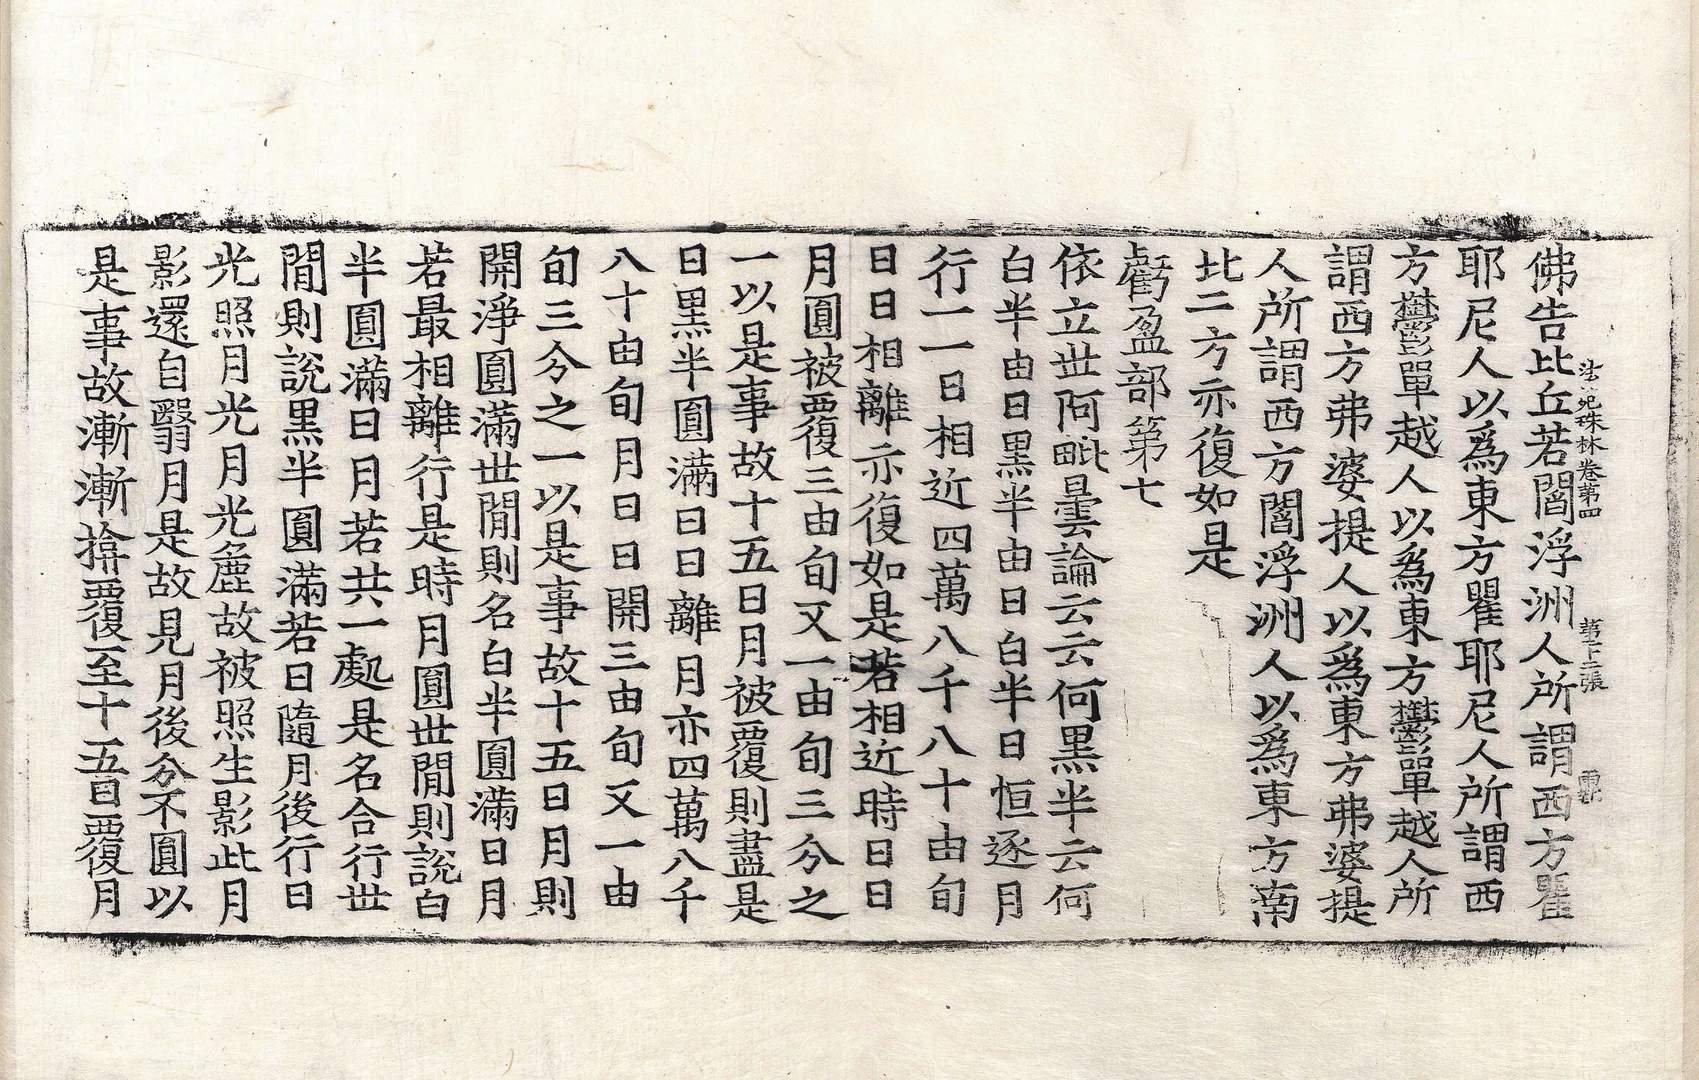 法苑珠林卷第四 第十二張 覇
佛告比丘若閻浮洲人所謂西方瞿
耶尼人以爲東方瞿耶尼人所謂西
方欝單越人以爲東方欝單越人所
謂西方弗婆提人以爲東方弗婆提
人所謂西方閻浮洲人以爲東方南
北二方亦復如是
虧盈部第七
依立世阿毗曇論云云何黒半云何
白半由日黒半由日白半日恒逐月
行一一日相近四萬八千八十由旬
日日相離亦復如是若相近時日日
月圓被覆三由旬又一由旬三分之
一以是事故十五日月被覆則盡是
日黒半圓滿日日離月亦四萬八千
八十由旬月日日開三由旬又一由
旬三分之一以是事故十五日月則
開淨圓滿世間則名白半圓滿日月
若最相離行是時月圓世間則說白
半圓滿日月若共一處是名合行世
間則說黒半圓滿若日隨月後行日
光照月光月光麁故被照生影此月
影還自翳月是故見月後分不圓以
是事故漸漸掩覆至十五日覆月